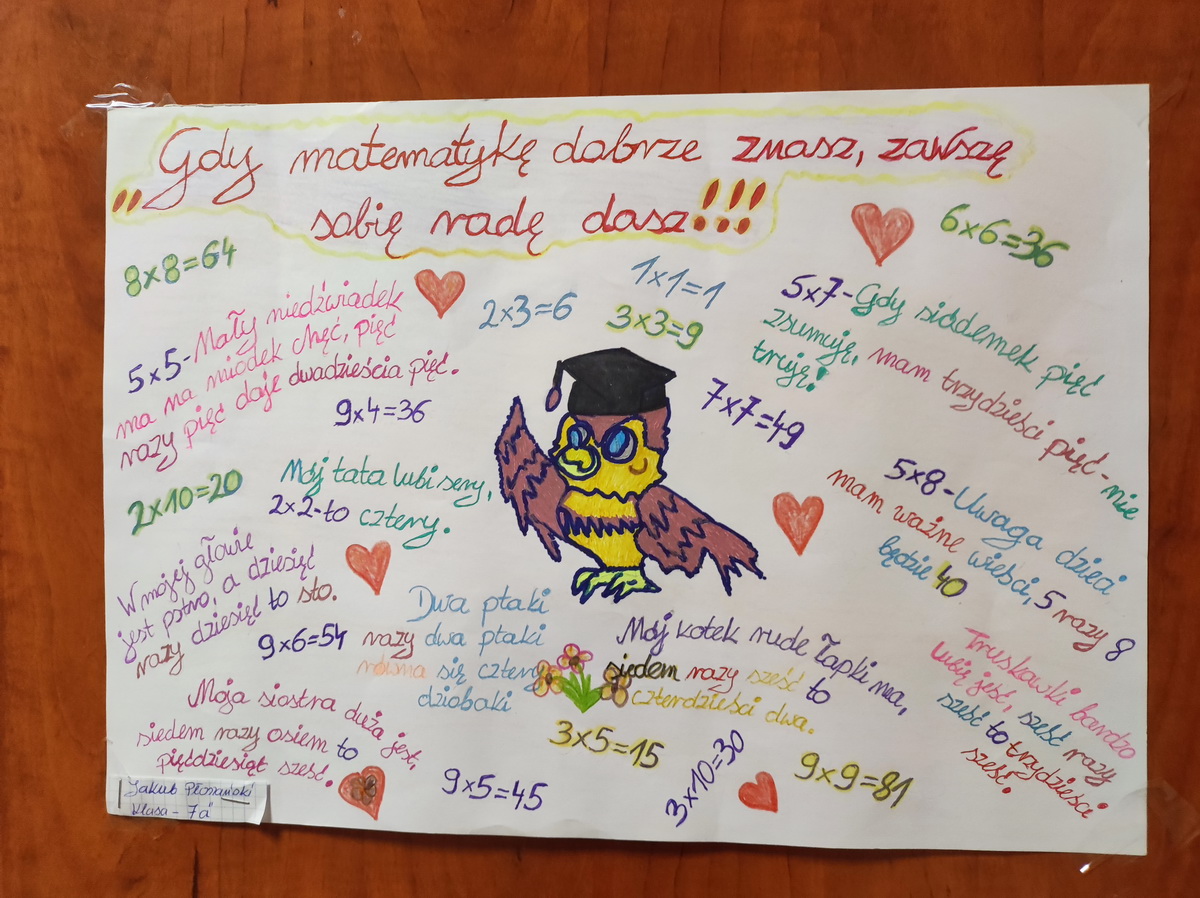 „Gdy matematykę dobrze znasz, zawszę
sobię radę dasz!!!
8x8=64
6x6=36
1x1=1
2x3=6
3x3=9
5x5-Mały niedźwiadek
ma na miodek chęć, pięć
razy pięć daje dwadzieścia pięć.
5x7-Gdy siódemek pięć
zsumuję, mam trzydzieści pięć-nie
truję!
9x4=36
7x7=49
2x10=20
Mój tata lubi sery,
2x2-to cztery.
5x8-Uwaga dzieci
mam ważne wieści, 5 razy 8
będzie 40
W mojej głowie
jest pstro, a dziesięć
razy dziesięć to sto.
9x6=54
Dwa ptaki
razy dwa ptaki
równa się cztery
dziobaki
Mój kotek rude łapki ma,
siedem razy sześć to
czterdzieści dwa.
Truskawki bardzo
lubię jeść, sześć razy
sześć to trzydzieści
sześć.
Moja siostra duża jest,
siedem razy osiem to
pięćdziesiąt sześć.
3x5=15
3x10=30
9x9=81
9x5=45
Jakub
Klasa - 7a